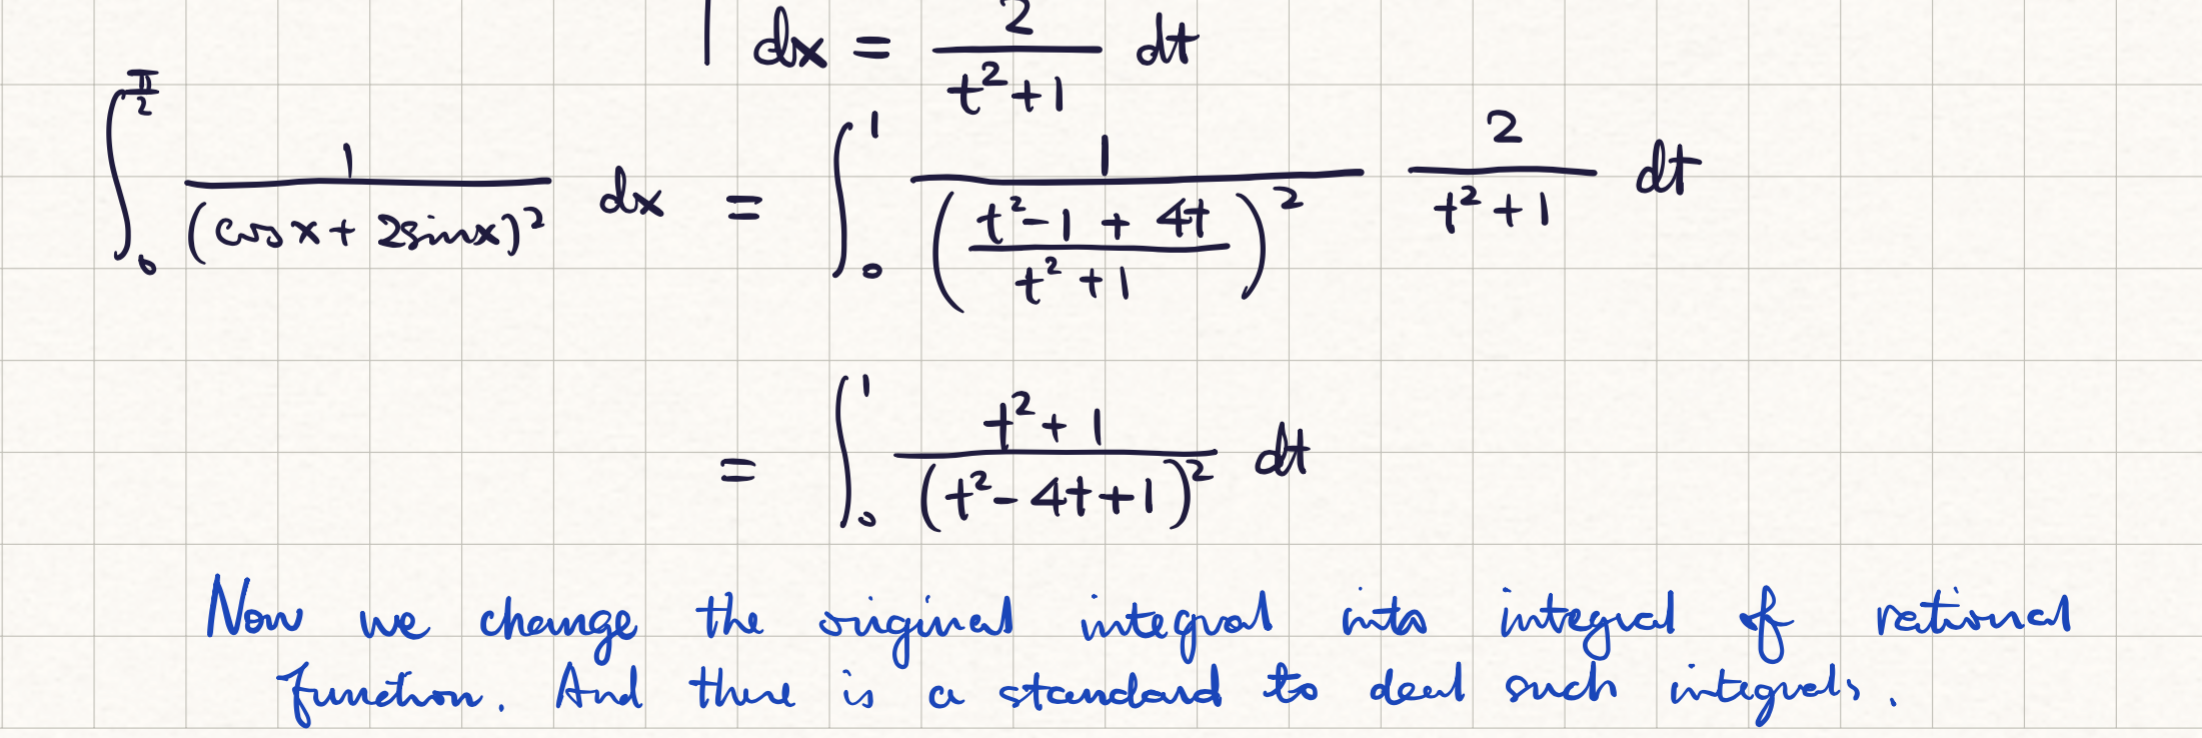 dx = 2/(t²+1) dt
∫₀^(π/2) 1/(cos x + 2sin x)² dx = ∫₀¹ 1/((t²-1+4t)/(t²+1))² 2/(t²+1) dt
= ∫₀¹ (t²+1)/(t²-4t+1)² dt
Now we change the original integral into integral of rational
function. And there is a standard to deal such integrals.